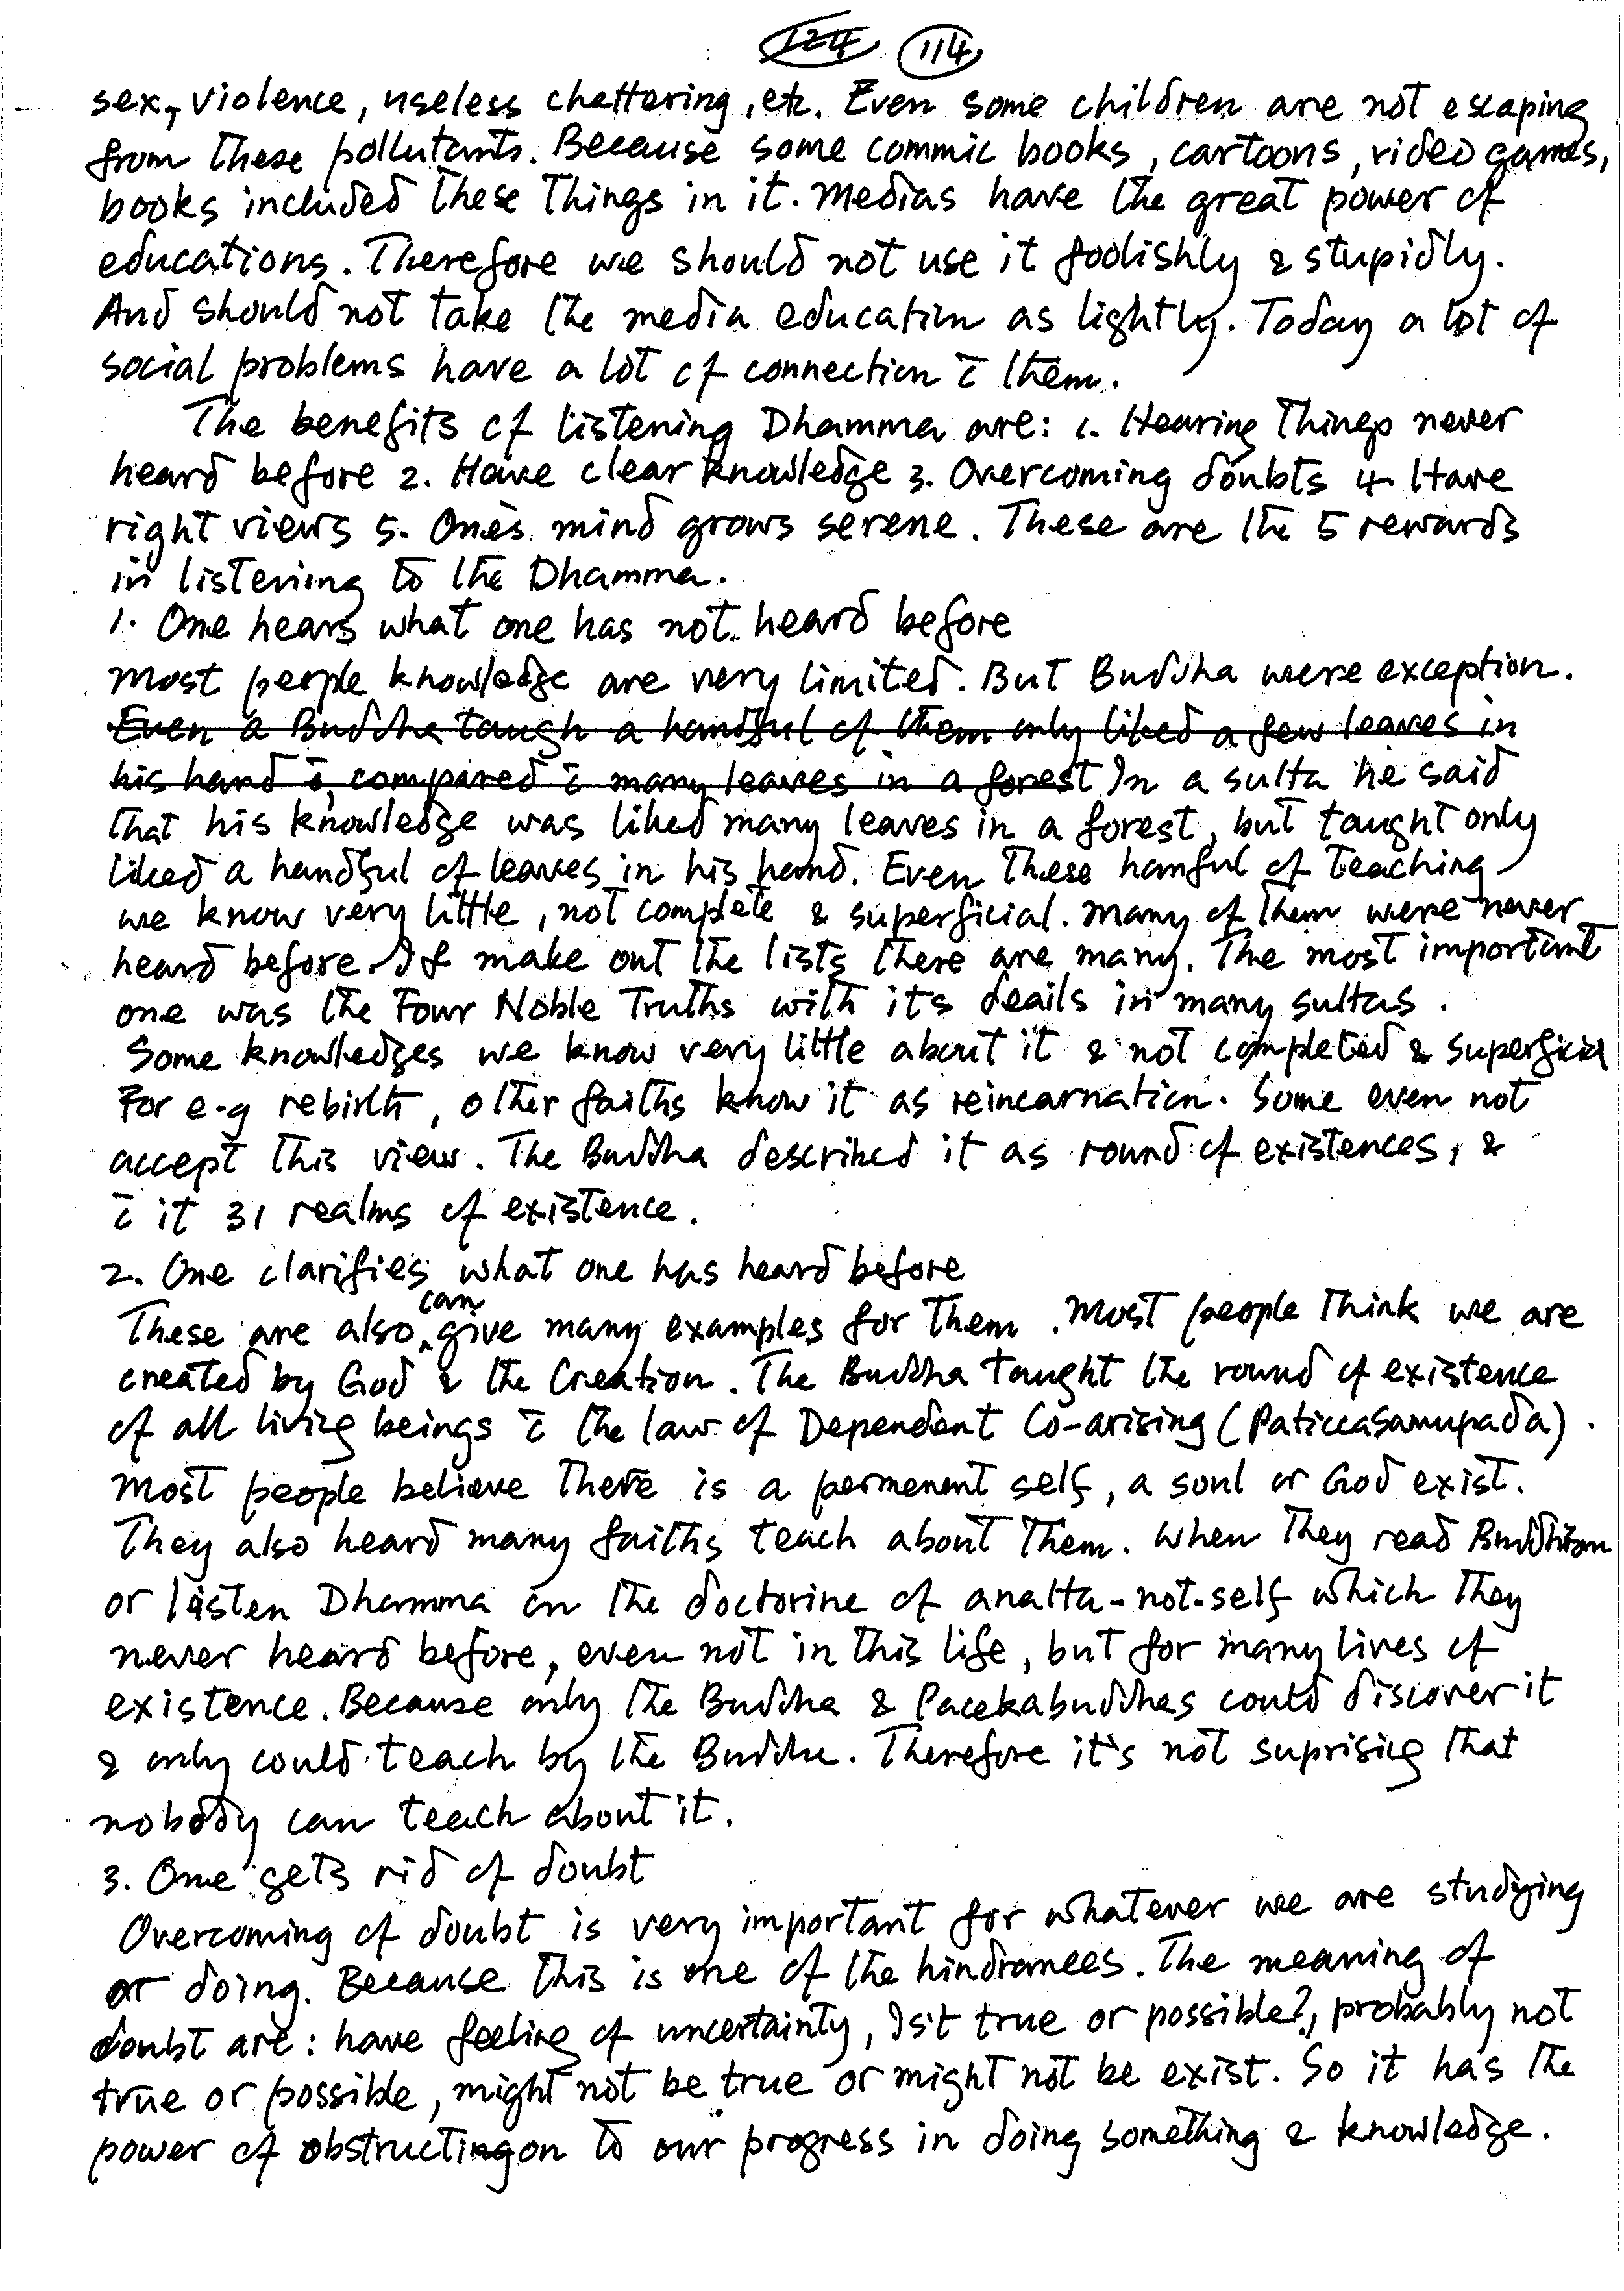 124 114
sex, violence, useless chattering, etc. Even some children are not escaping
from these pollutants. Because some commic books, cartoons, video games,
books included these things in it. Medias have the great power of
educations. Therefore we should not use it foolishly & stupidly.
And should not take the media education as lightly. Today a lot of
social problems have a lot of connection c̄ them.
The benefits of listening Dhamma are: 1. Hearing things never
heard before 2. Have clear knowledge 3. Overcoming doubts 4. Have
right views 5. One's mind grows serene. These are the 5 rewards
in listening to the Dhamma.
1. One hears what one has not heard before
Most people knowledge are very limited. But Buddha were exception.
Even a Buddha taugh a handful of them only liked a few leaves in
his hand c̄, compared c̄ many leaves in a forest In a sutta he said
that his knowledge was liked many leaves in a forest, but taught only
liked a handful of leaves in his hand. Even these hanful of teaching
we know very little, not complete & superficial. Many of them were never
heard before. If make out the lists there are many. The most important
one was the Four Noble Truths with it's deails in many suttas.
Some knowledges we know very little about it & not completed & superficial
For e-g rebirth, other faiths know it as reincarnation. Some even not
accept this view. The Buddha described it as round of existences, &
c̄ it 31 realms of existence.
2. One clarifies what one has heard before
These are also can give many examples for them. Most people think we are
created by God & the Creation. The Buddha taught the round of existence
of all living beings c̄ the law of Dependent Co-arising (Paticcasamupada).
Most people believe there is a permenent self, a soul or God exist.
They also heard many faiths teach about them. When they read Buddhism
or listen Dhamma on the doctorine of anatta-not-self which they
never heard before, even not in this life, but for many lives of
existence. Because only the Buddha & Pacekabuddhas could discover it
& only could teach by the Buddha. Therefore it's not suprising that
nobody can teach about it.
3. One gets rid of doubt
Overcoming of doubt is very important for whatever we are studying
or doing. Because this is one of the hindrances. The meaning of
doubt are: have feeling of uncertainty, Is't true or possible?, probably not
true or possible, might not be true or might not be exist. So it has the
power of obstruction to our progress in doing something & knowledge.